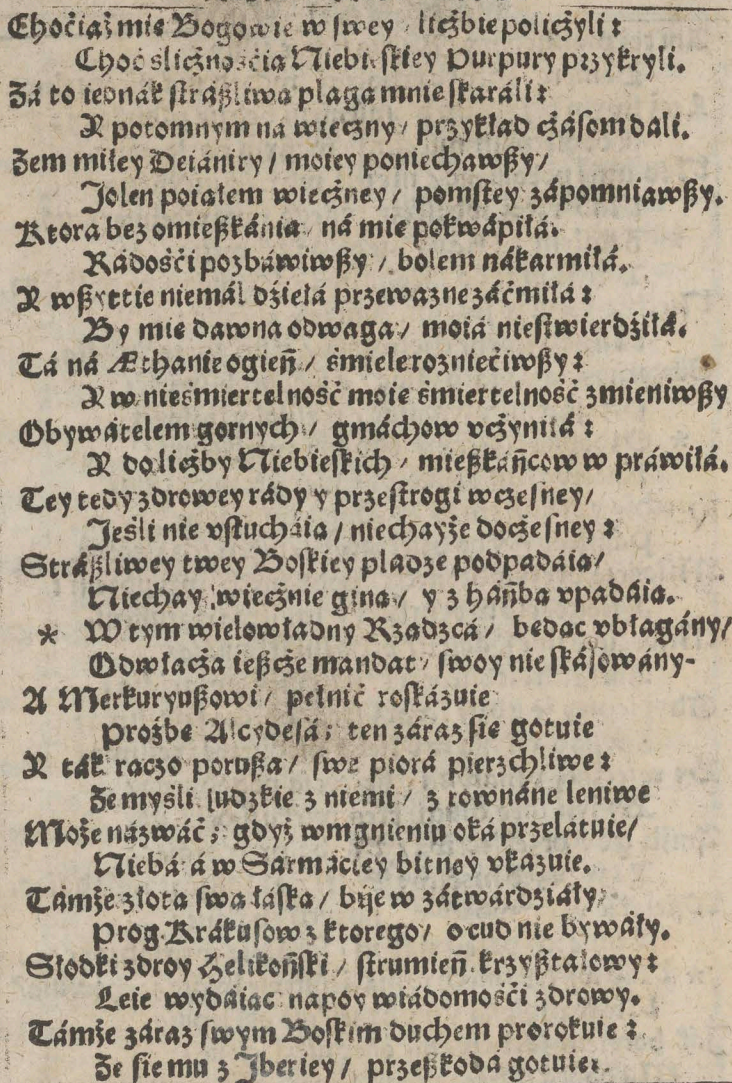 Choćiaż mie Bogowie w swey / licżbie policżyli :
Choć slicżnosćia Niebieskiey Purpury przykryli.
Zá to iednák stráßliwa plaga mnie skaráli :
Y potomnym na wieczny / przykład cżásom dali.
Zem miłey Deiániry / moiey poniechawßy /
Jolen poiałem wiecżney / pomstey zápomniawßy.
Ktora bez omießkánia / ná mie pokwápiłá.
Rádośći pozbáwiwßy / bolem nákarmiłá.
Y wßyttie niemál dźiełá przewazne záćmiłá :
By mie dawna odwaga / moiá niestwierdźiłá.
Tá ná Æthanie ogień / śmiele rozniećiwßy :
Y w nieśmiertelność moie śmiertelność zmieniwßy
Obywátelem gornych / gmáchow vcżyniłá :
Y do licżby Niebieskich / mießkáńcow w práwiłá.
Tey tedy zdrowey rády y przestrogi wczesney /
Jeśli nie vsłucháia / niechayże docżesney :
Stráßliwey twey Boskiey pladze podpadáia /
Niechay wiecżnie gina / y z háńba vpadáia.
* W tym wielowładny Rzadzcá / bedac vbłagány /
Odwłacża ießcże mandat / swoy nie skásowány-
A Merkuryußowi / pełnić roskázuie
Proźbe Alcydesá ; ten záraz sie gotuie
Y ták raczo porußa / swe piorá pierzchliwe :
Ze myśli ludzkie z niemi / z rownáne leniwe
Może názwáć ; gdyż wmgnieniu oká przelátuie /
Niebá á w Sármáciey bitney vkazuie.
Támże złota swa łáska / bije w zátwárdziáły /
Prog Krákusow z ktorego / o cud nie bywáły.
Słodki zdroy Helikoński / strumień krzyßtałowy :
Leie wydáiac napoy wiádomośći zdrowy.
Támże záraz swym Boskim duchem prorokuie :
Ze sie mu z Jberiey / przeßkodá gotuie.